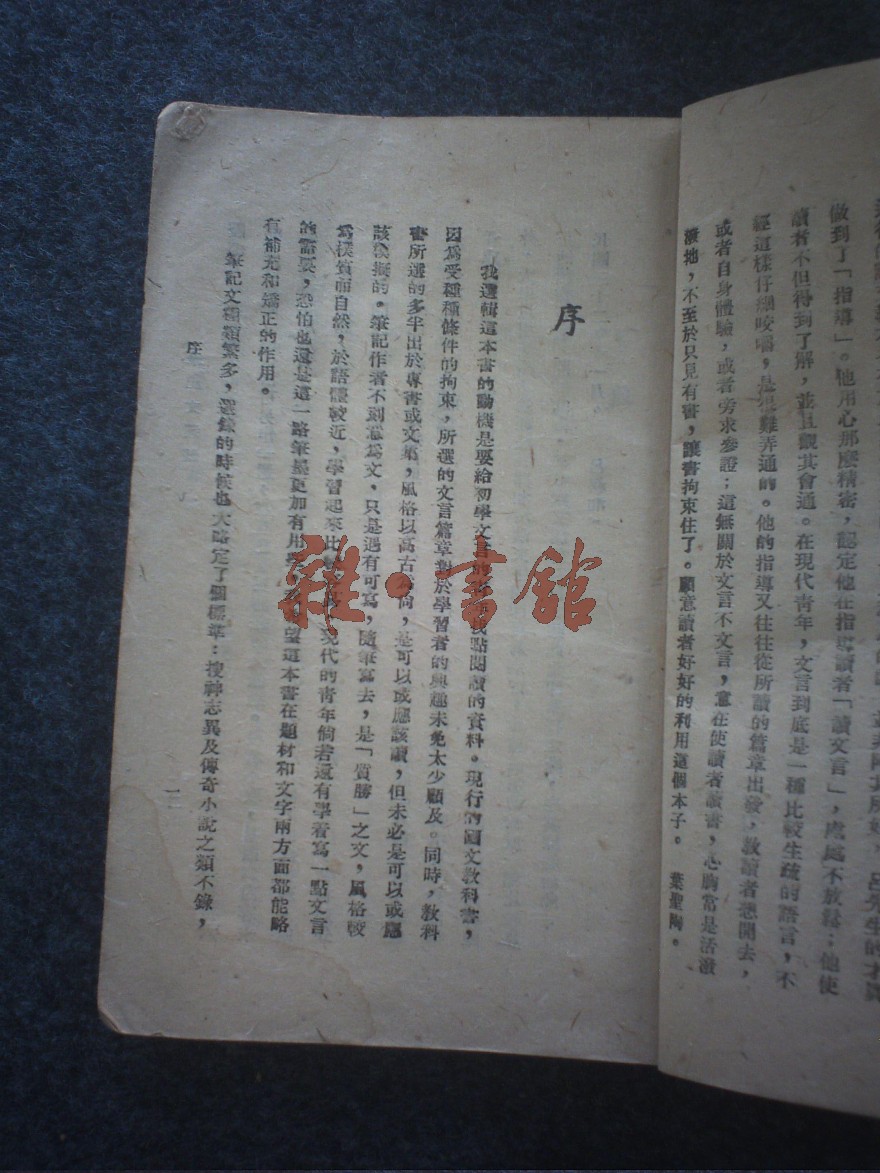 做到了「指導」。他用心那麼精密,認定他在指導讀者「讀文言」,處處不放鬆;他使
讀者不但得到了解,並且觀其會通。在現代青年,文言到底是一種比較生疏的語言,不
經這樣仔細咬嚼,是很難弄通的。他的指導又往往從所讀的篇章出發,教讀者想開去,
或者自身體驗,或者旁求參證;這無關於文言不文言,意在使讀者讀書,心胸常是活潑
潑地,不至於只見有書,讓書拘束住了。願意讀者好好的利用這個本子。 葉聖陶。
序
我選輯這本書的動機是要給初學文言的找點閱讀的資料。現行的國文教科書,
因為受種種條件的拘束,所選的文言篇章對於學習者的興趣未免太少顧及。同時,教科
書所選的多半出於專書或文集,風格以高古為尚,是可以或應該讀,但未必是可以或應
該模擬的。筆記作者不刻意為文,只是遇有可寫,隨筆寫去,是「質勝」之文,風格較
為樸質而自然,於語體較近,學習起來比較現代的青年倘若還有學着寫一點文言
的需要,恐怕也還是這一路筆墨更加有用望這本書在題材和文字兩方面都能略
有補充和矯正的作用。
筆記文種類繁多,選錄的時候也大略定了個標準:搜神志異及傳奇小說之類不錄,
序
一
雜·書館